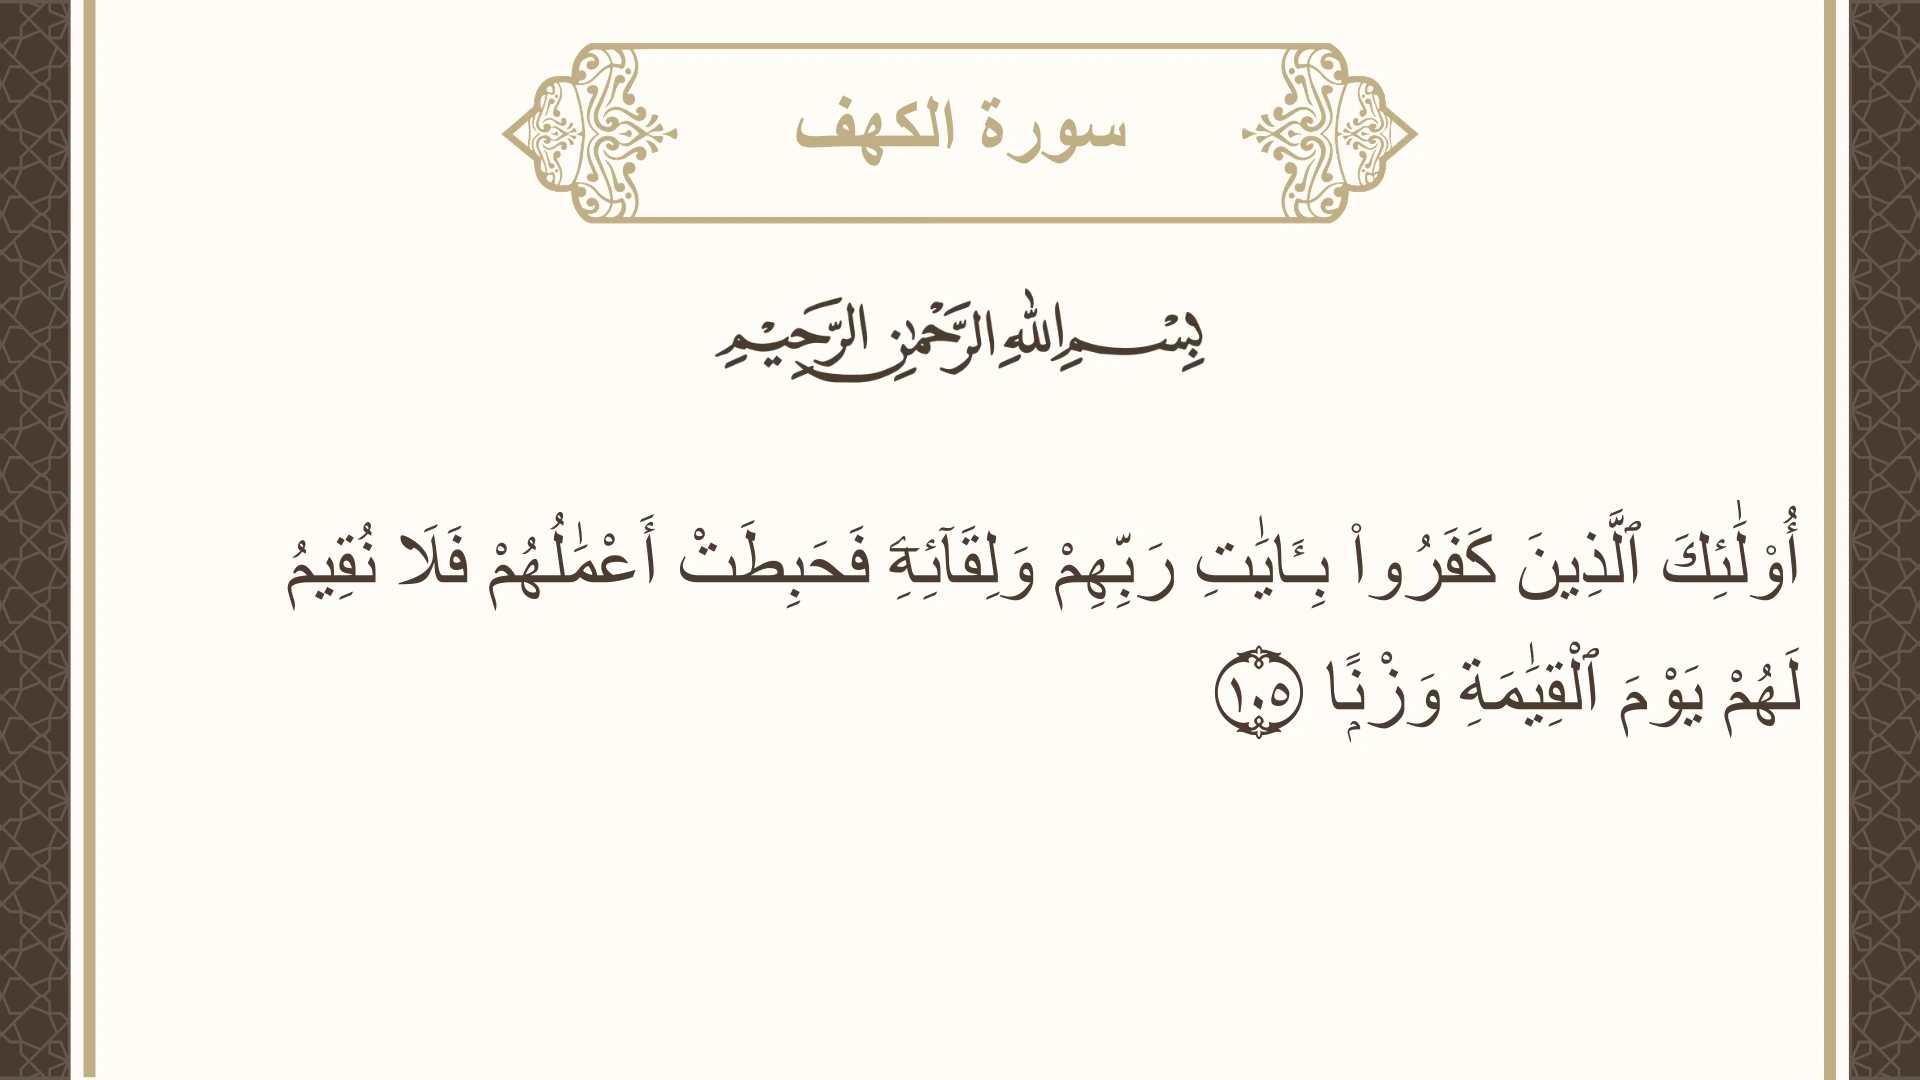 سورة الكهف
بِسْمِ اللهِ الرَّحْمٰنِ الرَّحِيْمِ
أُوْلَٰٓئِكَ ٱلَّذِينَ كَفَرُواْ بِـَٔايَٰتِ رَبِّهِمْ وَلِقَآئِهِۦ فَحَبِطَتْ أَعْمَٰلُهُمْ فَلَا نُقِيمُ
لَهُمْ يَوْمَ ٱلْقِيَٰمَةِ وَزْنًۭا ١٠٥